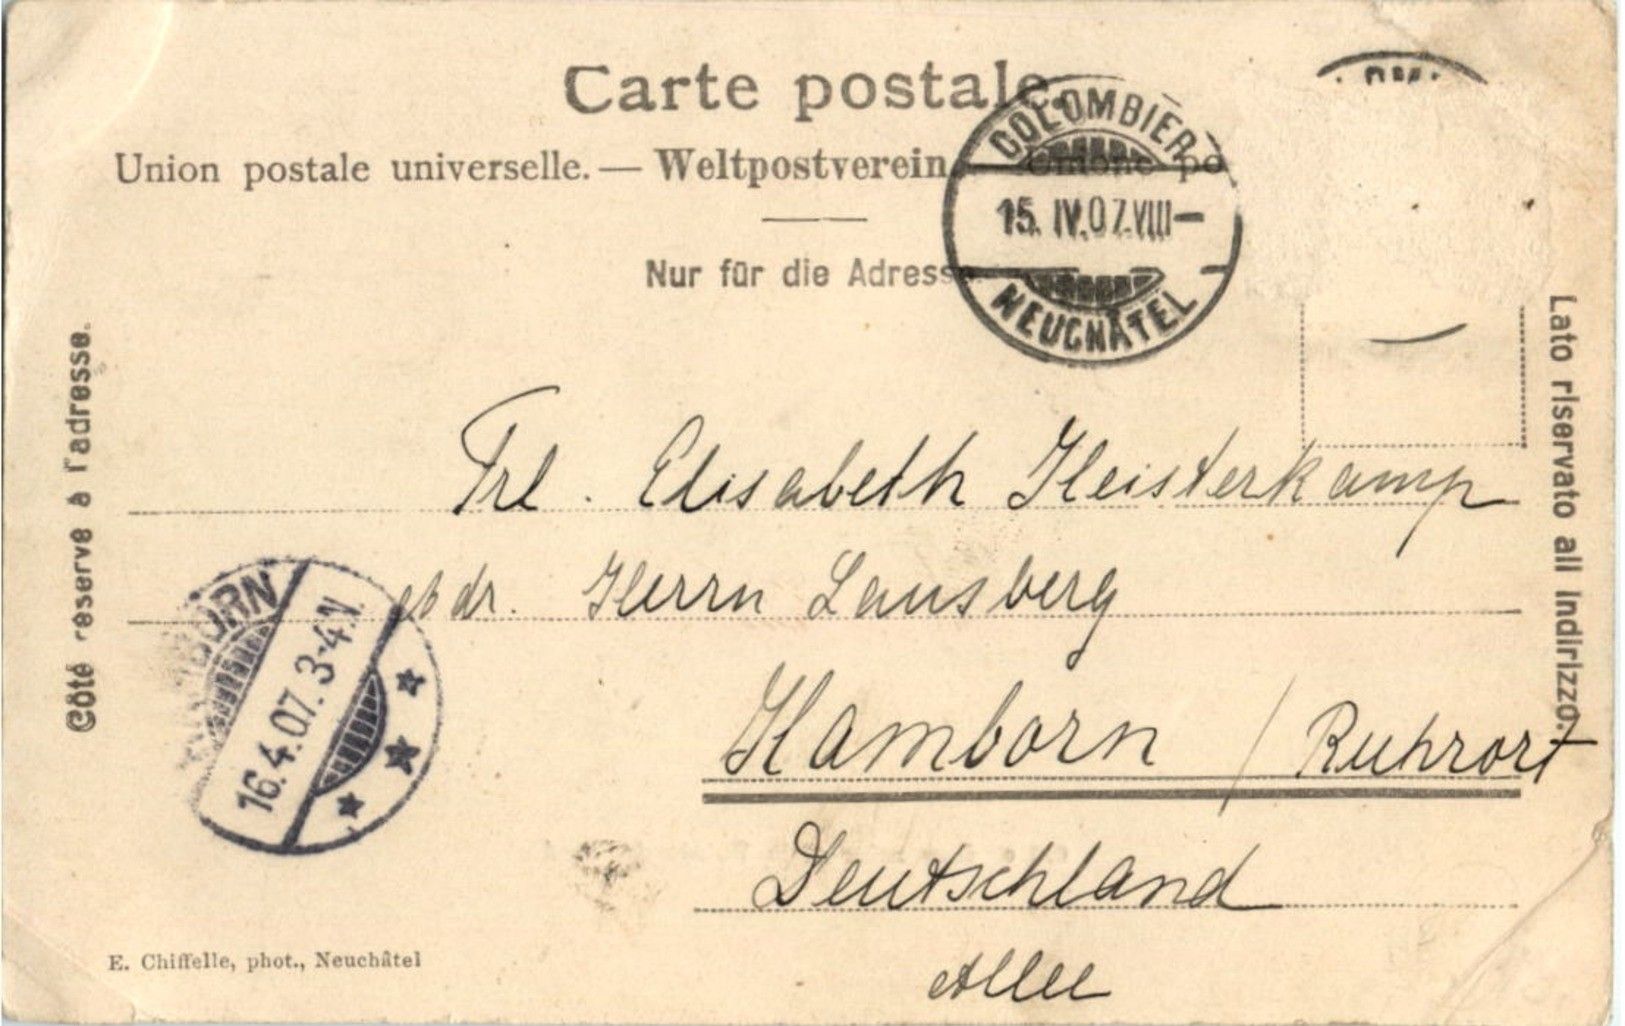 Carte postale.
Union postale universelle. — Weltpostverein. — Unione po
Nur für die Adresse.
COLOMBIER
15. IV. 07. VIII —
NEUCHÂTEL
Côté reservé à l'adresse.
Lato riservato all indirizzo.
Frl. Elisabeth Heisterkamp
adr. Herrn Lansberg
Hamborn / Ruhrort
Deutschland
Allee
BORN
16.4.07. 3-4.N.
E. Chiffelle, phot., Neuchâtel